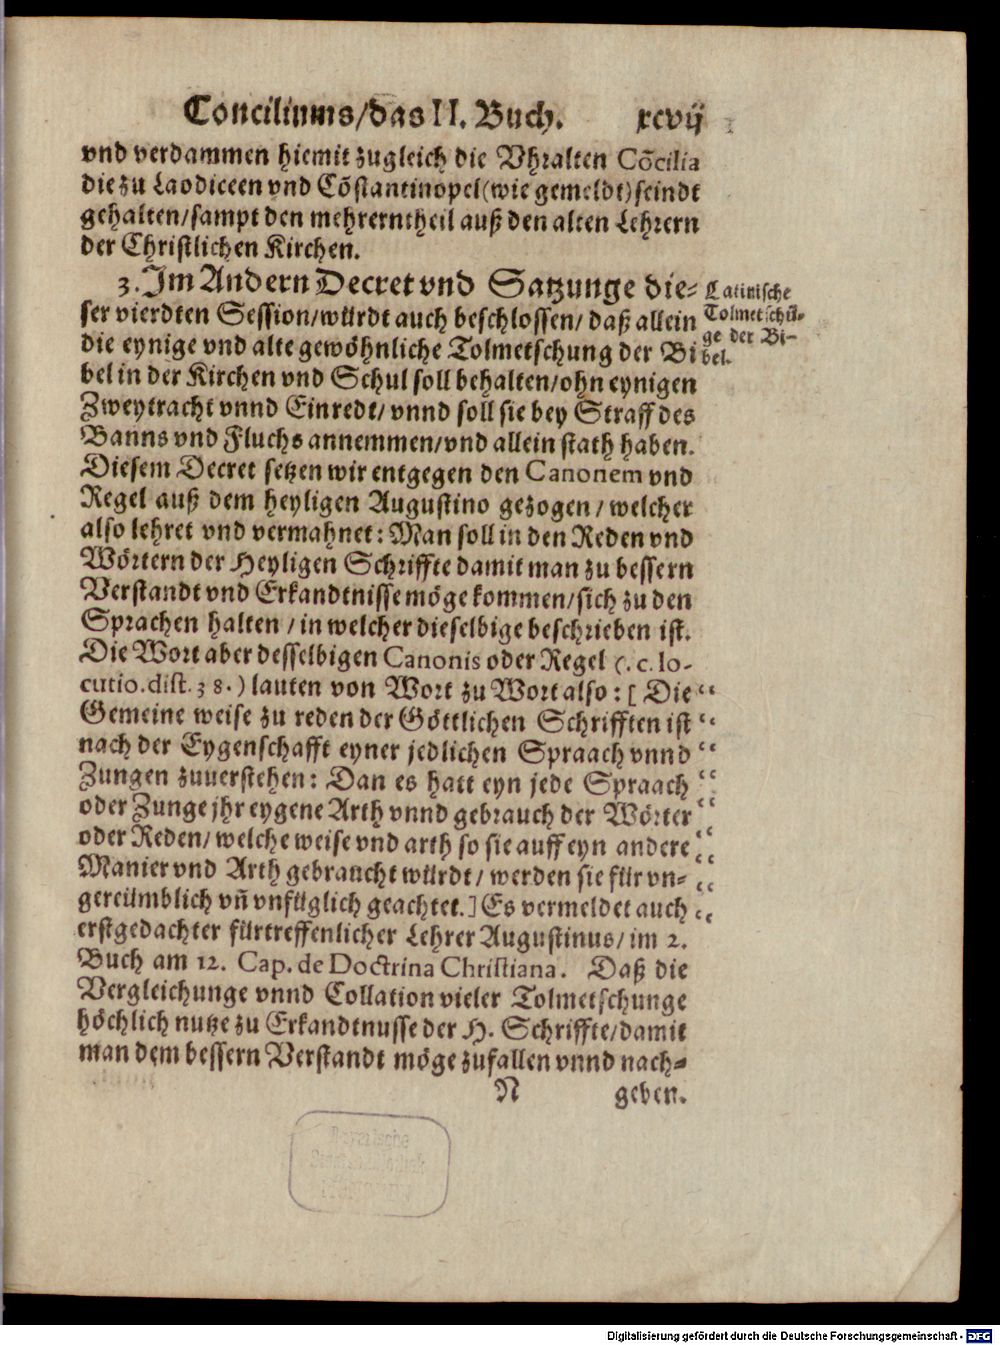 Conciliums/das II. Buch. xcvij
vnd verdammen hiemit zugleich die Vhralten Cõcilia
die zu Laodiceen vnd Cõstantinopel (wie gemeldt) seindt
gehalten/sampt den mehrerntheil auß den alten Lehrern
der Christlichen Kirchen.
3. Im Andern Decret vnd Satzunge die⸗
ser vierdten Session/würdt auch beschlossen/ daß allein
die eynige vnd alte gewöhnliche Tolmetschung der Bi
bel in der Kirchen vnd Schul soll behalten/ohn eynigen
Zweytracht vnnd Einredt/ vnnd soll sie bey Straff des
Banns vnd Fluchs annemmen/vnd allein stath haben.
Diesem Decret setzen wir entgegen den Canonem vnd
Regel auß dem heyligen Augustino gezogen / welcher
also lehret vnd vermahnet: Man soll in den Reden vnd
Wörtern der Heyligen Schriffte damit man zu bessern
Verstandt vnd Erkandtnisse möge kommen/sich zu den
Sprachen halten / in welcher dieselbige beschrieben ist.
Die Wort aber desselbigen Canonis oder Regel (. c. lo-
cutio. dist. 38. ) lauten von Wort zu Wort also: [ Die
Gemeine weise zu reden der Göttlichen Schrifften ist
nach der Eygenschafft eyner jedlichen Spraach vnnd
Zungen zuuerstehen: Dan es hatt eyn jede Spraach
oder Zunge jhr eygene Arth vnnd gebrauch der Wörter
oder Reden/ welche weise vnd arth so sie auff eyn andere
Manier vnd Arth gebraucht würdt/ werden sie für vn⸗
gereümblich vñ vnfüglich geachtet.] Es vermeldet auch
erstgedachter fürtreffenlicher Lehrer Augustinus/ im 2.
Buch am 12. Cap. de Doctrina Christiana. Daß die
Vergleichunge vnnd Collation vieler Tolmetschunge
höchlich nutze zu Erkandtnusse der H. Schriffte/damit
man dem bessern Verstandt möge zufallen vnnd nach⸗
N geben.
Latinische
Tolmetschũ-
ge der Bi-
bel.
“
“
“
“
“
“
“
“
“
Bayerische
Staatsbibliothek
München
Digitalisierung gefördert durch die Deutsche Forschungsgemeinschaft - DFG